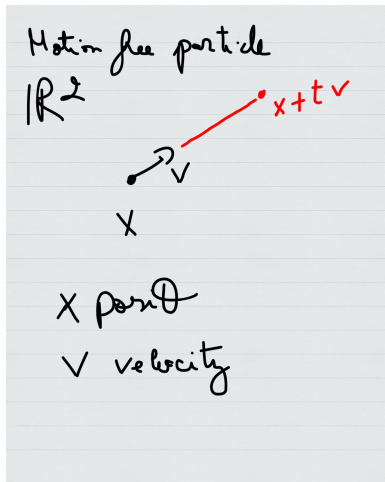 Motion free particle
IR²
x + t v
V
X
X posit
V velocity